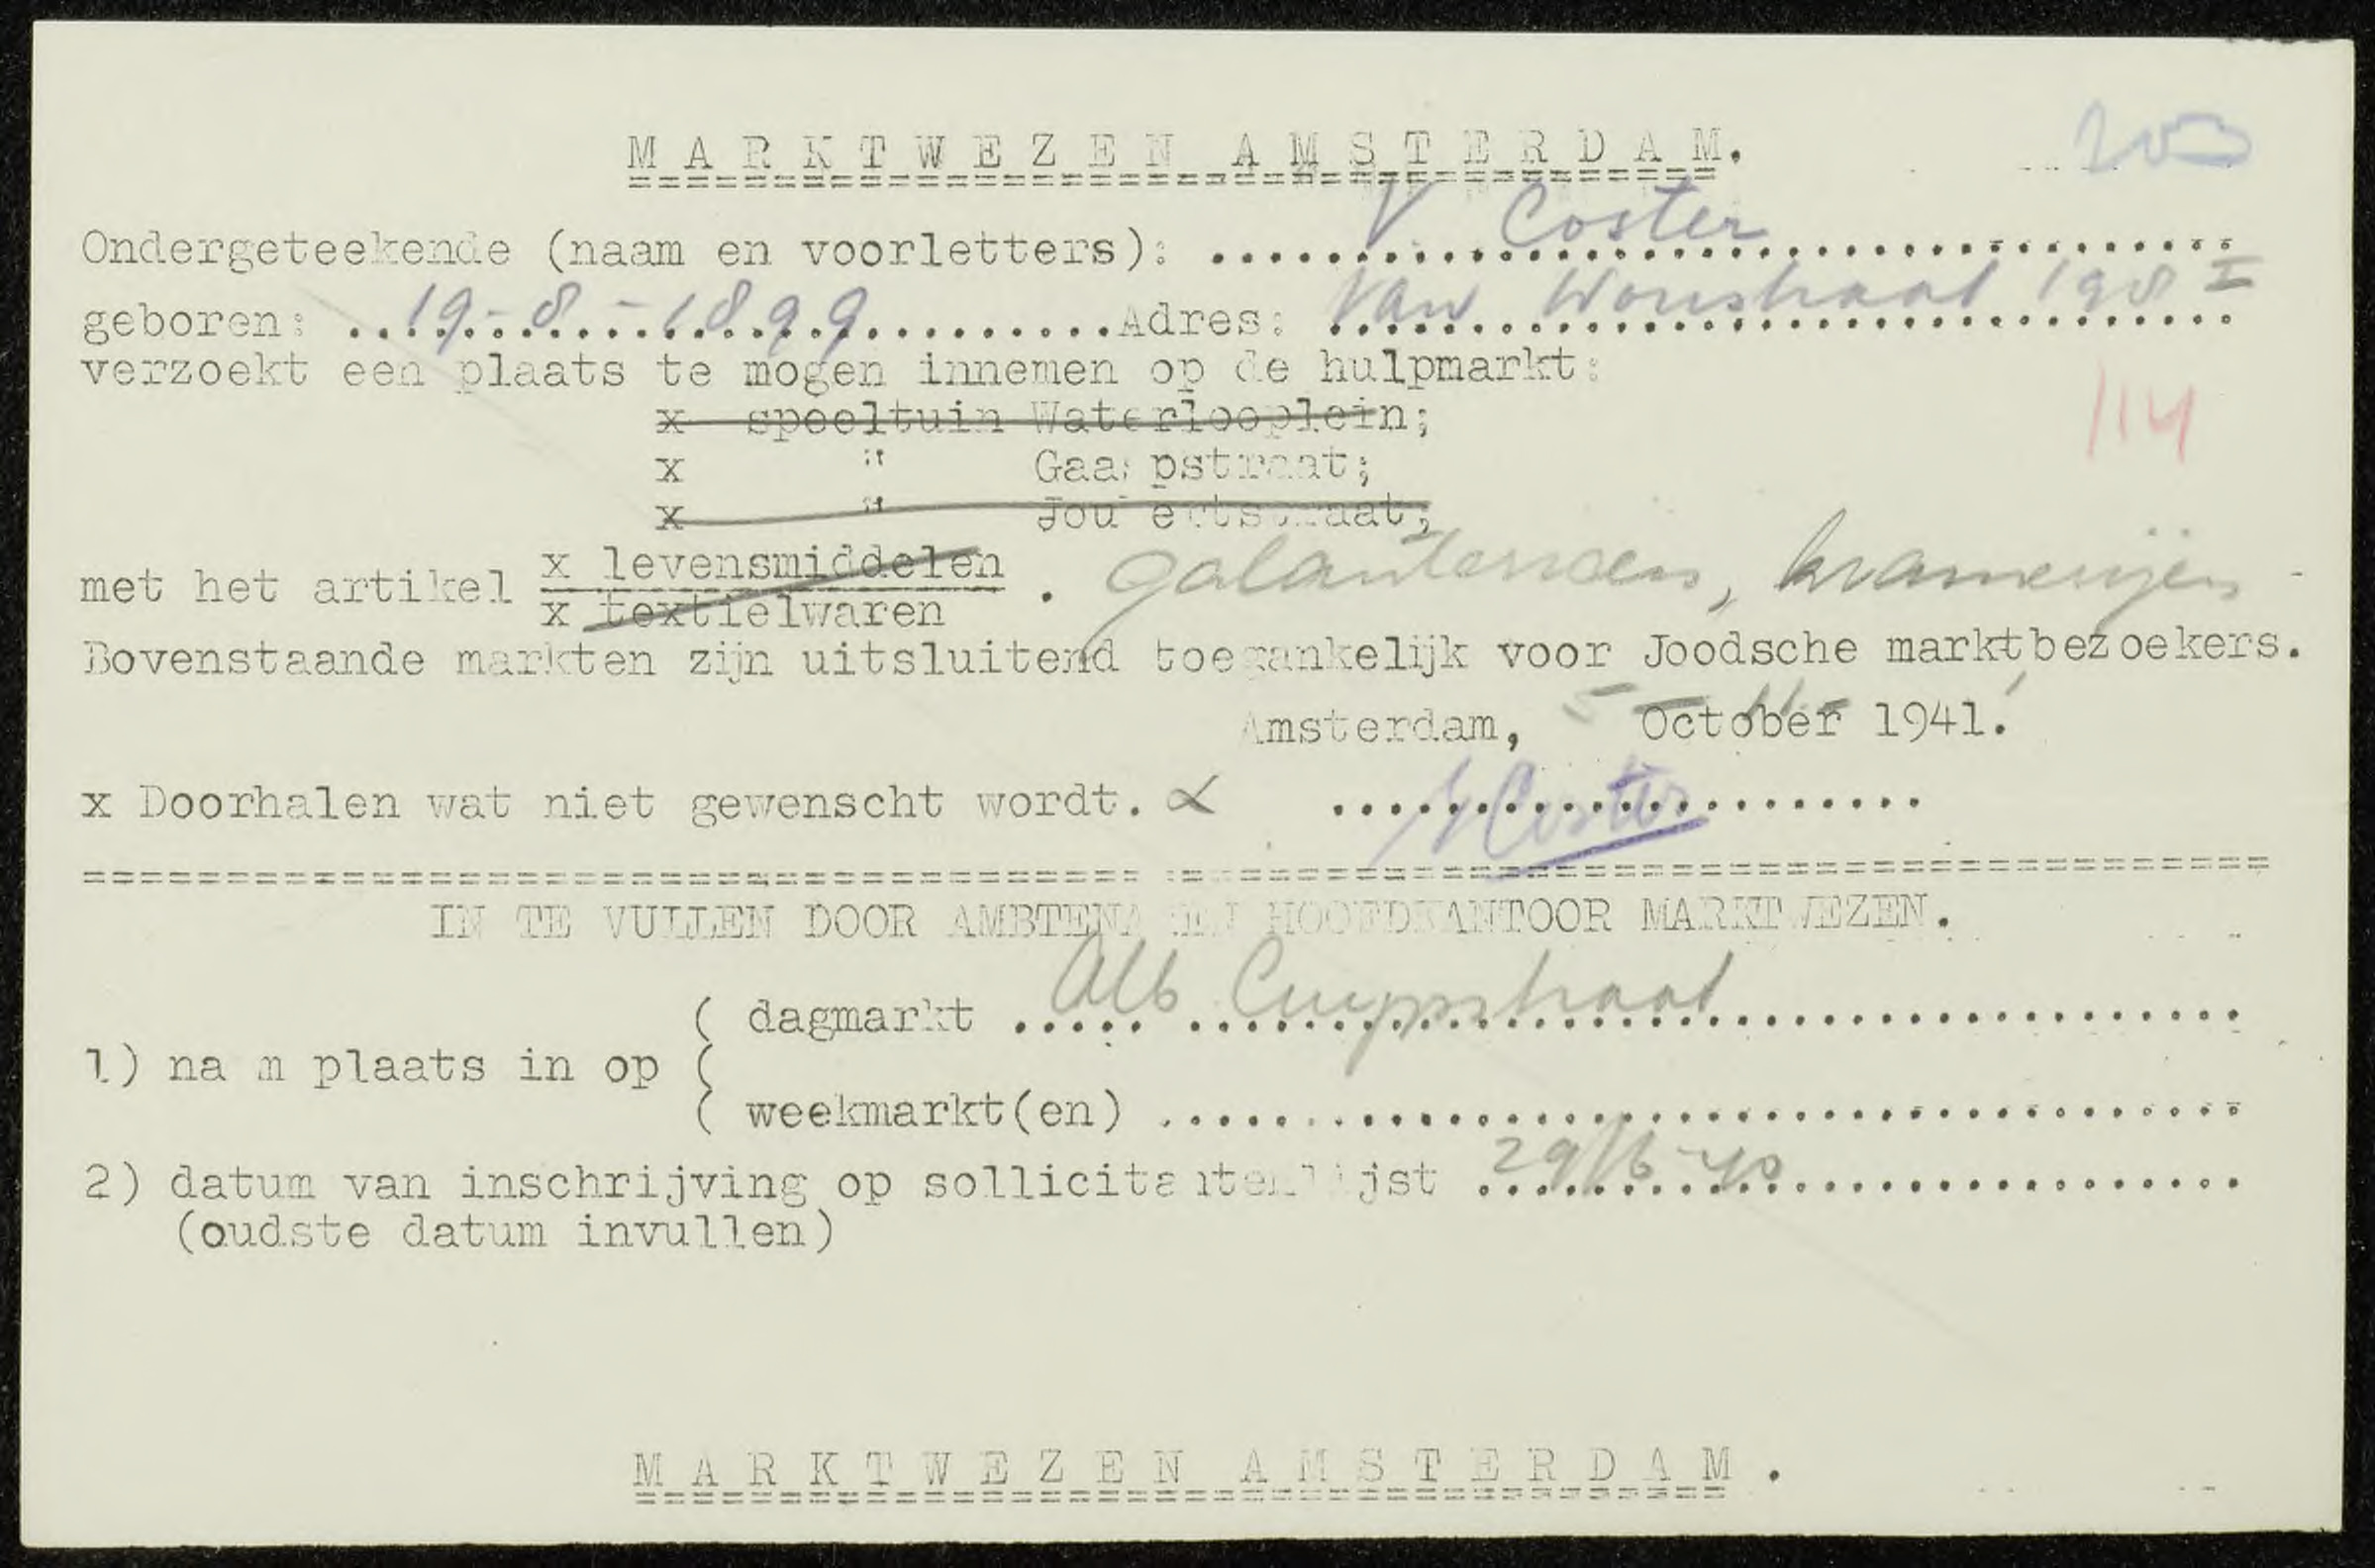 MARKTWEZEN AMSTERDAM.
203
Ondergeteekende (naam en voorletters): V Coster
geboren: 19-8-1899 Adres: Van Woustraat 198 I
verzoekt een plaats te mogen innemen op de hulpmarkt:
x speeltuin Waterlooplein;
x " Gaaspstraat;
114
x " Joubertstraat;
x levensmiddelen
met het artikel . galanterieën, kramerijen
x textielwaren
Bovenstaande markten zijn uitsluitend toegankelijk voor Joodsche marktbezoekers.
Amsterdam, 5 October 11 1941.
x Doorhalen wat niet gewenscht wordt. V Coster
IN TE VULLEN DOOR AMBTENAREN HOOFDKANTOOR MARKTWEZEN.
( dagmarkt Alb Cuypstraat
1) nam plaats in op (
( weekmarkt(en)
2) datum van inschrijving op sollicitantenlijst 29/6-40
(oudste datum invullen)
MARKTWEZEN AMSTERDAM.